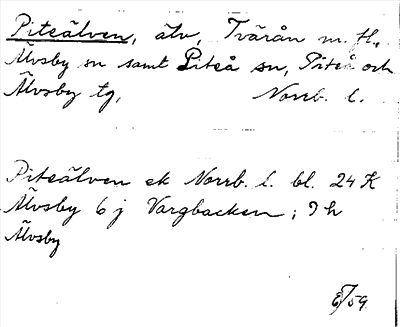 Piteälven, älv, Tvärån m. fl.,
Älvsby sn samt Piteå sn, Piteå och
Älvsby tg, Norrb. l.
Piteälven ek Norrb. l. bl. 24 K
Älvsby 6 j Vargbacken; 9 h
Älvsby